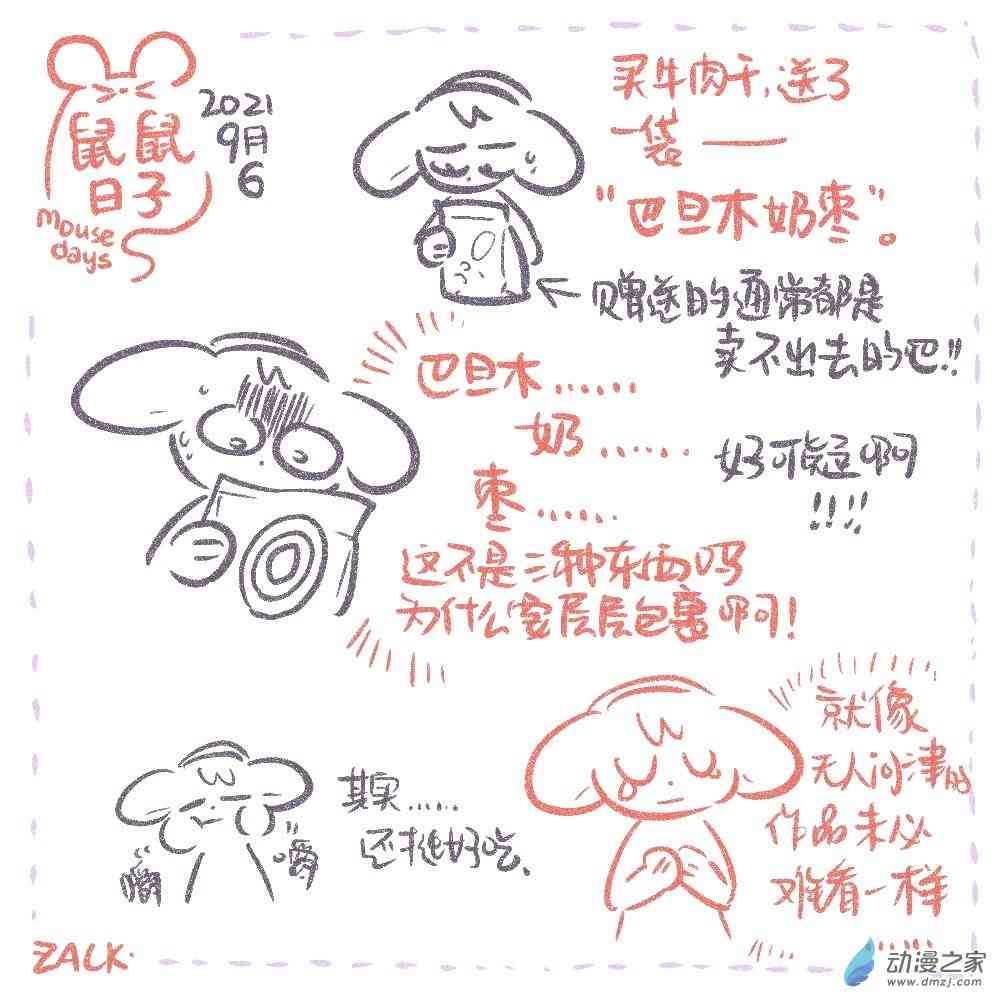 鼠鼠
日子
mouse
days
2021
9月
6
买牛肉干,送了
一袋——
“巴旦木奶枣”。
←赠送的通常都是
卖不出去的吧!!
巴旦木……
奶……
枣……
好可疑啊
!!!!
这不是三种东西吗
为什么要层层包裹啊!
其实……
还挺好吃、
嚼
嚼
就像
无人问津的
作品未必
难看一样
……
ZALK.
动漫之家
www.dmzj.com